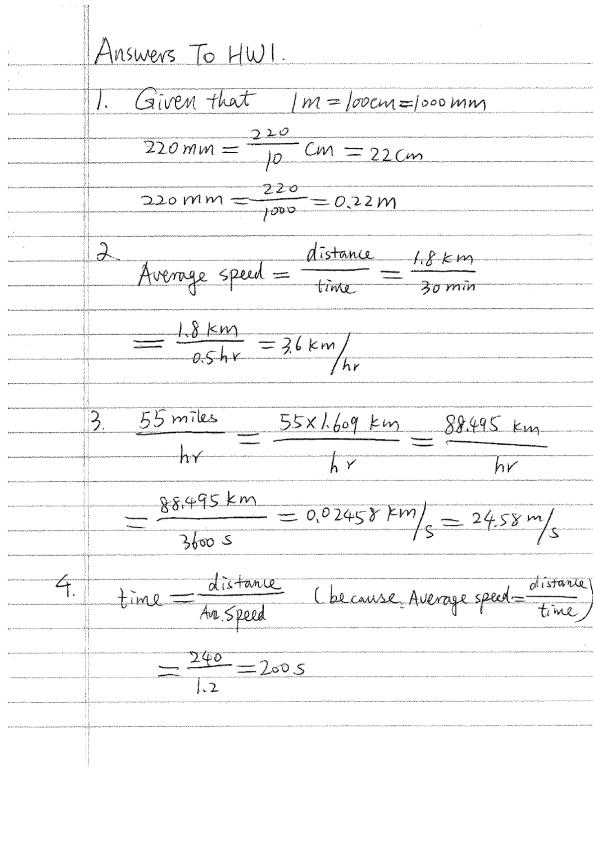 Answers To HW1.
1. Given that 1m = 100cm = 1000mm
220mm = 220/10 cm = 22cm
220mm = 220/1000 = 0.22m
2 Average speed = distance/time = 1.8 km/30 min
= 1.8 km/0.5 hr = 3.6 km/hr
3. 55 miles/hr = 55×1.609 km/hr = 88.495 km/hr
= 88.495 km/3600 s = 0.02458 km/s = 24.58 m/s
4. time = distance/Ave. Speed (because, Average speed = distance/time)
= 240/1.2 = 200 s